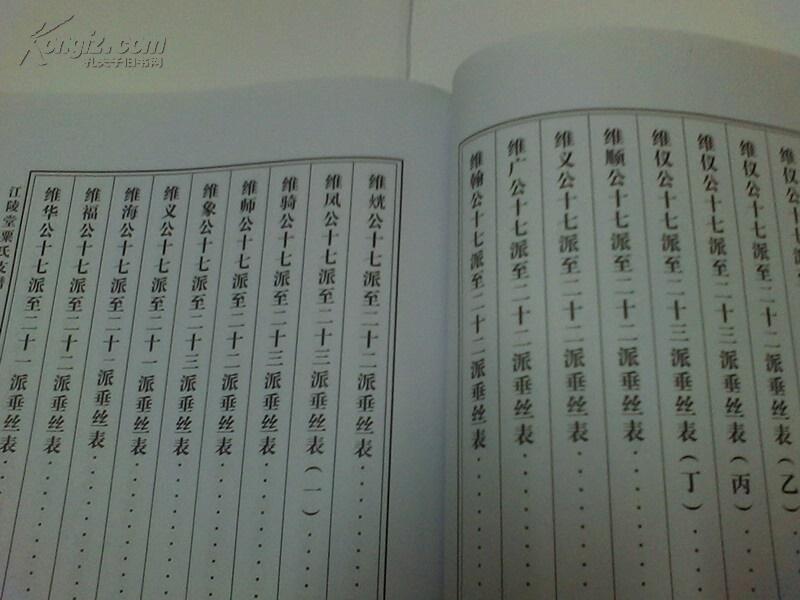 维仪公十七派至二十二派垂丝表（乙）
维仪公十七派至二十二派垂丝表（丙）
维仪公十七派至二十三派垂丝表（丁）
维顺公十七派至二十三派垂丝表
维义公十七派至二十二派垂丝表
维广公十七派至二十二派垂丝表
维翰公十七派至二十二派垂丝表
维公十七派至二十二派垂丝表
维风公十七派至二十三派垂丝表（一）
维骑公十七派至二十三派垂丝表
维师公十七派至二十二派垂丝表
维象公十七派至二十三派垂丝表
维义公十七派至二十一派垂丝表
维海公十七派至二十一派垂丝表
维福公十七派至二十二派垂丝表
维华公十七派至二十一派垂丝表
江陵堂粟氏支谱
Kongfz.com
孔夫子旧书网